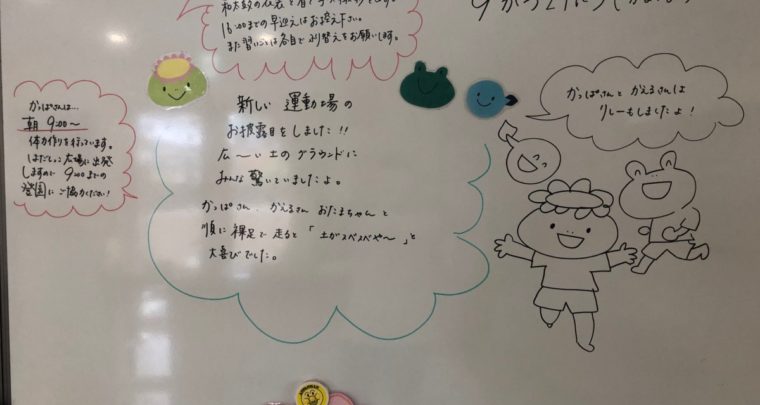 和太鼓の衣装を着て
16:00までの早迎えはお控え下さい。
また習いごとは各自で振替えをお願いします。
かっぱさんは…
朝 9:00〜
体力作りを行っています。
はだしっこ広場に出発
しますので 9:00までの
登園にご協力ください!
新しい 運動場の
お披露目をしました!!
広〜い土のグラウンドに
みんな驚いていましたよ。
かっぱさん、かえるさん おたまちゃんと
順に 裸足で 走ると 「土がスベスベや〜」と
大喜びでした。
かっぱさんと かえるさんは
リレーもしましたよ!